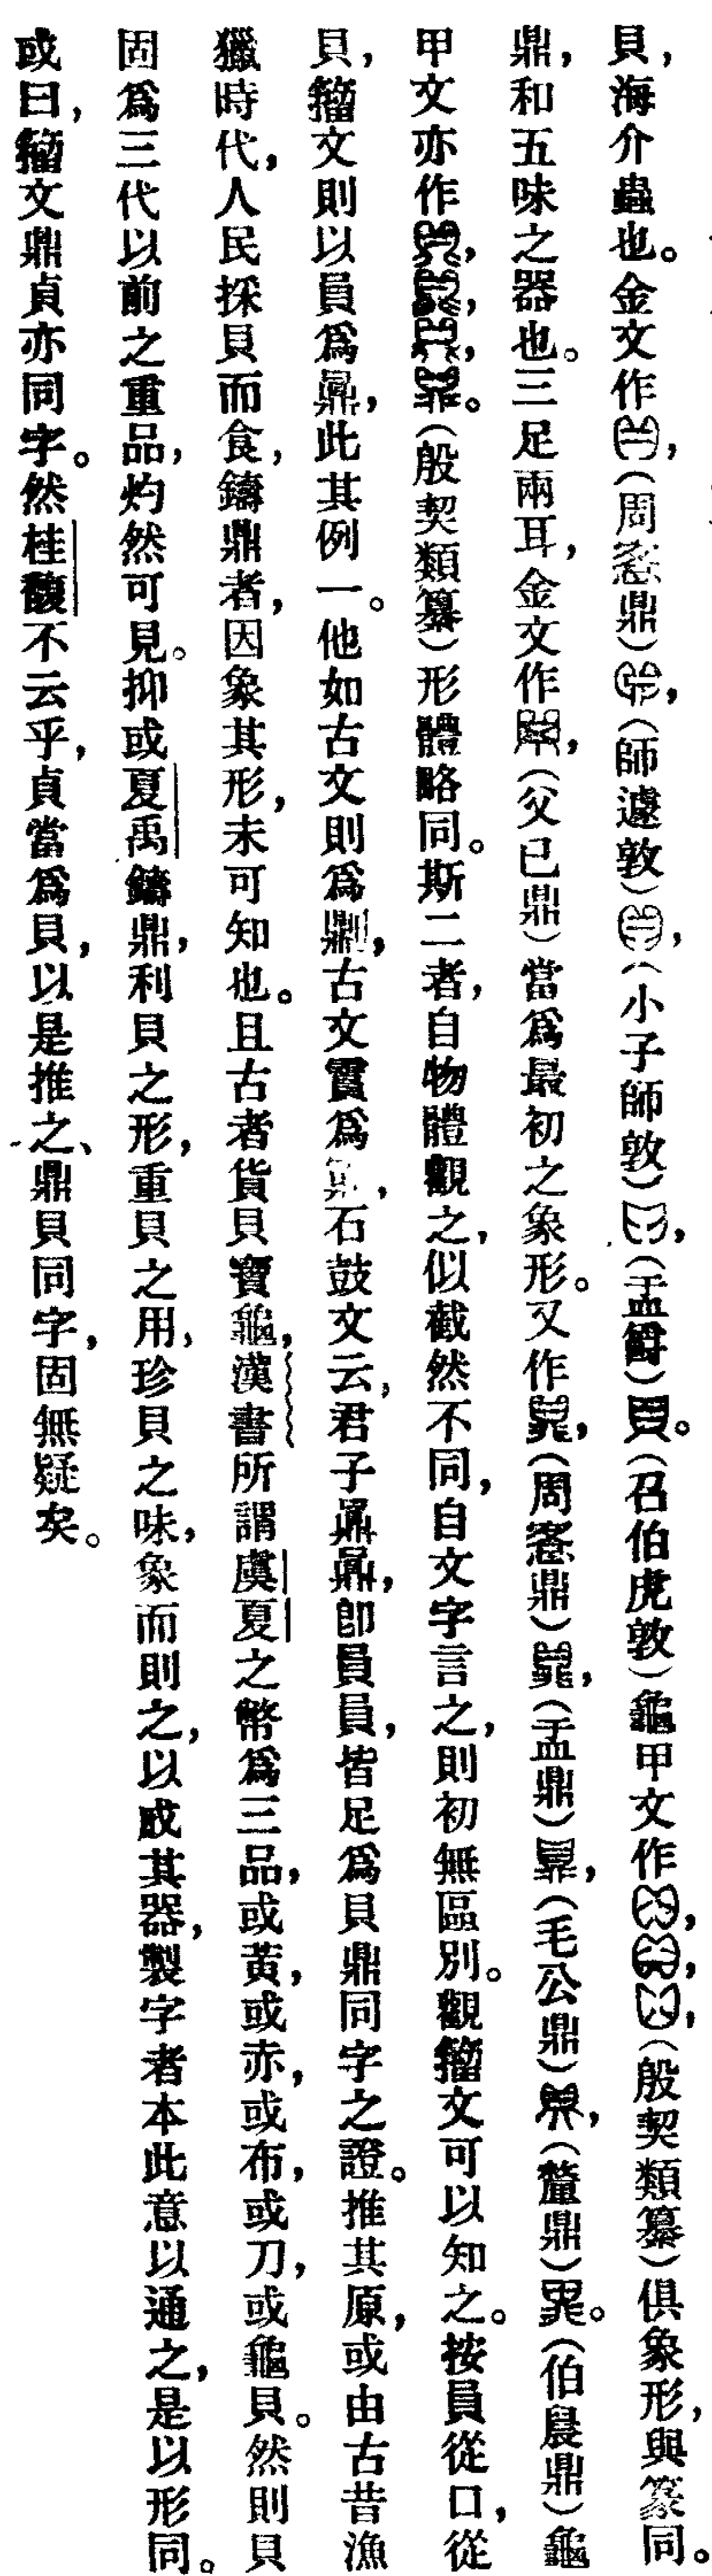 貝，海介蟲也。金文作，（周愙鼎），（師遽敦），（小子師敦），（盂爵）。（召伯虎敦）龜甲文作，，，（殷契類纂）俱象形，與篆同。
鼎，和五味之器也。三足兩耳，金文作，（父已鼎）當爲最初之象形。又作，（周愙鼎），（盂鼎），（毛公鼎），（釐鼎）。（伯晨鼎）龜
甲文亦作，，，。（殷契類纂）形體略同。斯二者，自物體觀之，似截然不同，自文字言之，則初無區別。觀籀文可以知之。按員從口，從
貝，籀文則以員爲鼏，此其例一。他如古文則爲鼎刂，古文霣爲，石鼓文云，君子鼎鼎，卽員員，皆足爲貝鼎同字之證。推其原，或由古昔漁
獵時代，人民採貝而食，鑄鼎者，因象其形，未可知也。且古者貨貝寶龜，漢書所謂虞夏之幣爲三品，或黃，或赤，或布，或刀，或龜貝。然則貝
固爲三代以前之重品，灼然可見。抑或夏禹鑄鼎，利貝之形，重貝之用，珍貝之味，象而則之，以成其器，製字者本此意以通之，是以形同。
或曰，籀文鼎貞亦同字。然桂馥不云乎，貞當爲貝，以是推之、鼎貝同字，固無疑矣。